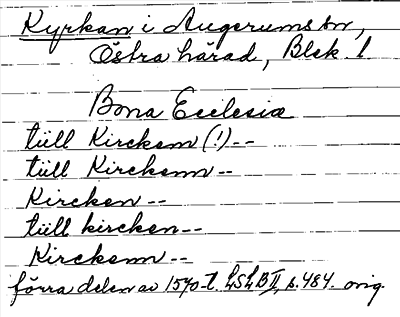 Kyrkan i Augerums sn,
Östra härad, Blek. l.
Bona Ecclesia
tüll Kirckem (!) --
tüll Kirckenn --
Kircken --
tüll kircken --
Kirckenn --
förra delen av 1540-t. LSLB II, s. 484. orig.